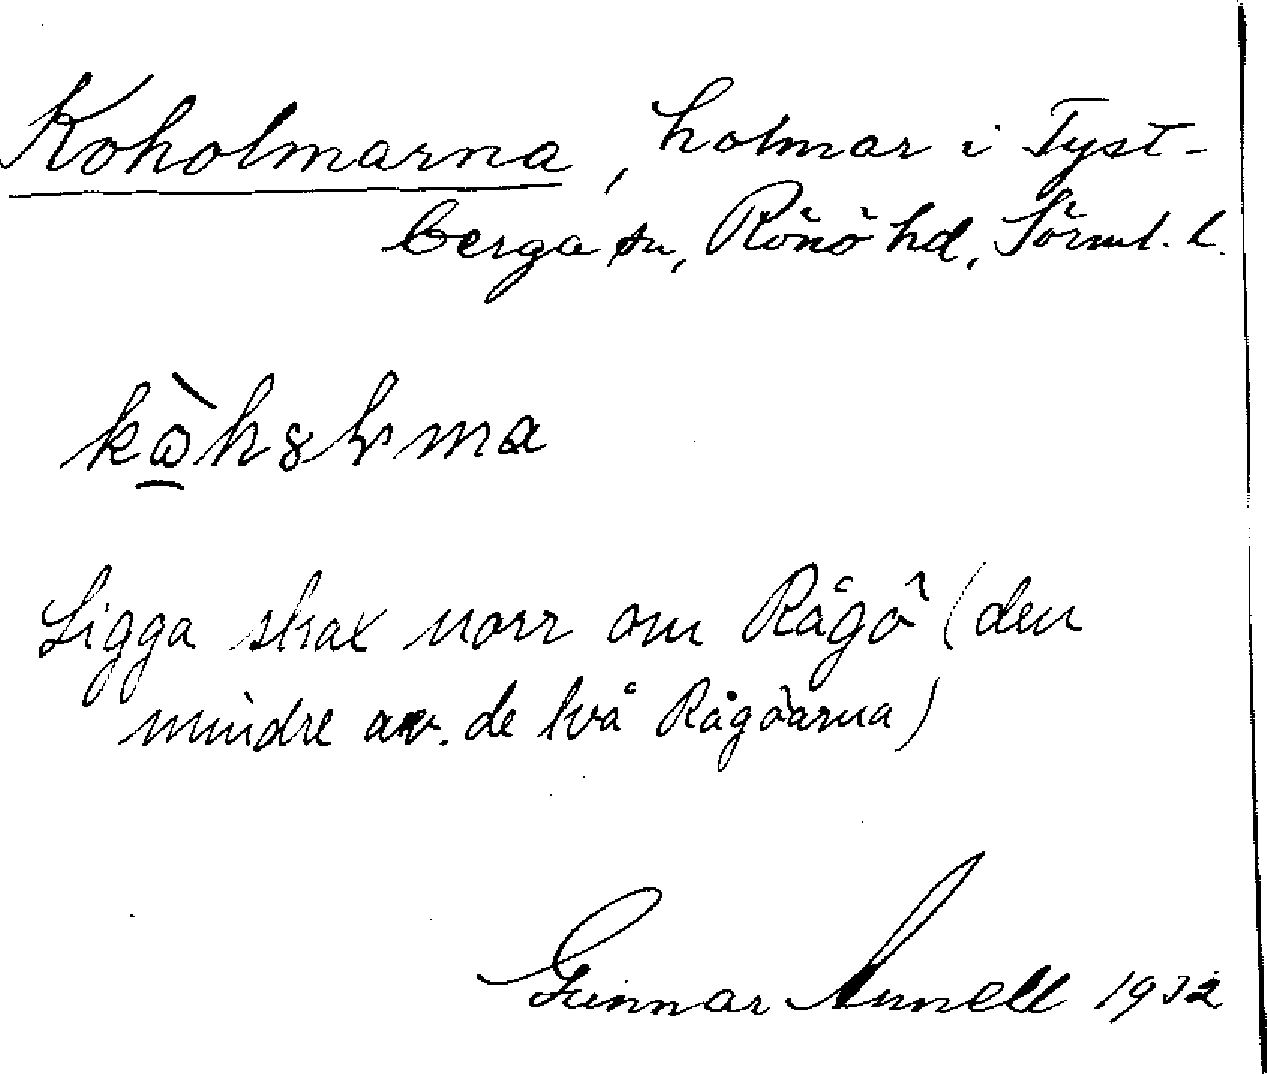 Koholmarna, holmar i Tyst-
berga sn, Rönö hd, Sörml. l.
Ligga strax norr om Rågö (den
mindre av de två Rågöarna)
Gunnar Annell 1932